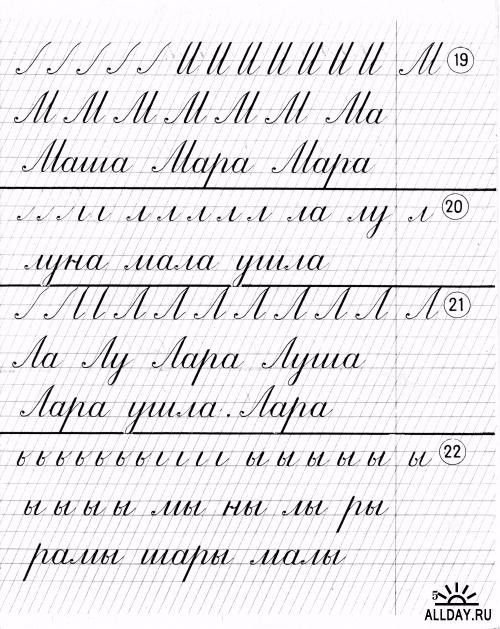 М 19
М М М М М М Ма
Маша Мара Мара
л л л л л ла лу л 20
луна мала ушла
Л Л Л Л Л Л Л Л 21
Ла Лу Лара Луша
Лара ушла. Лара
ь ь ь ь ь ь ь ы ы ы ы ы ы 22
ы ы ы ы мы ны лы ры
рамы шары малы
5
ALLDAY.RU